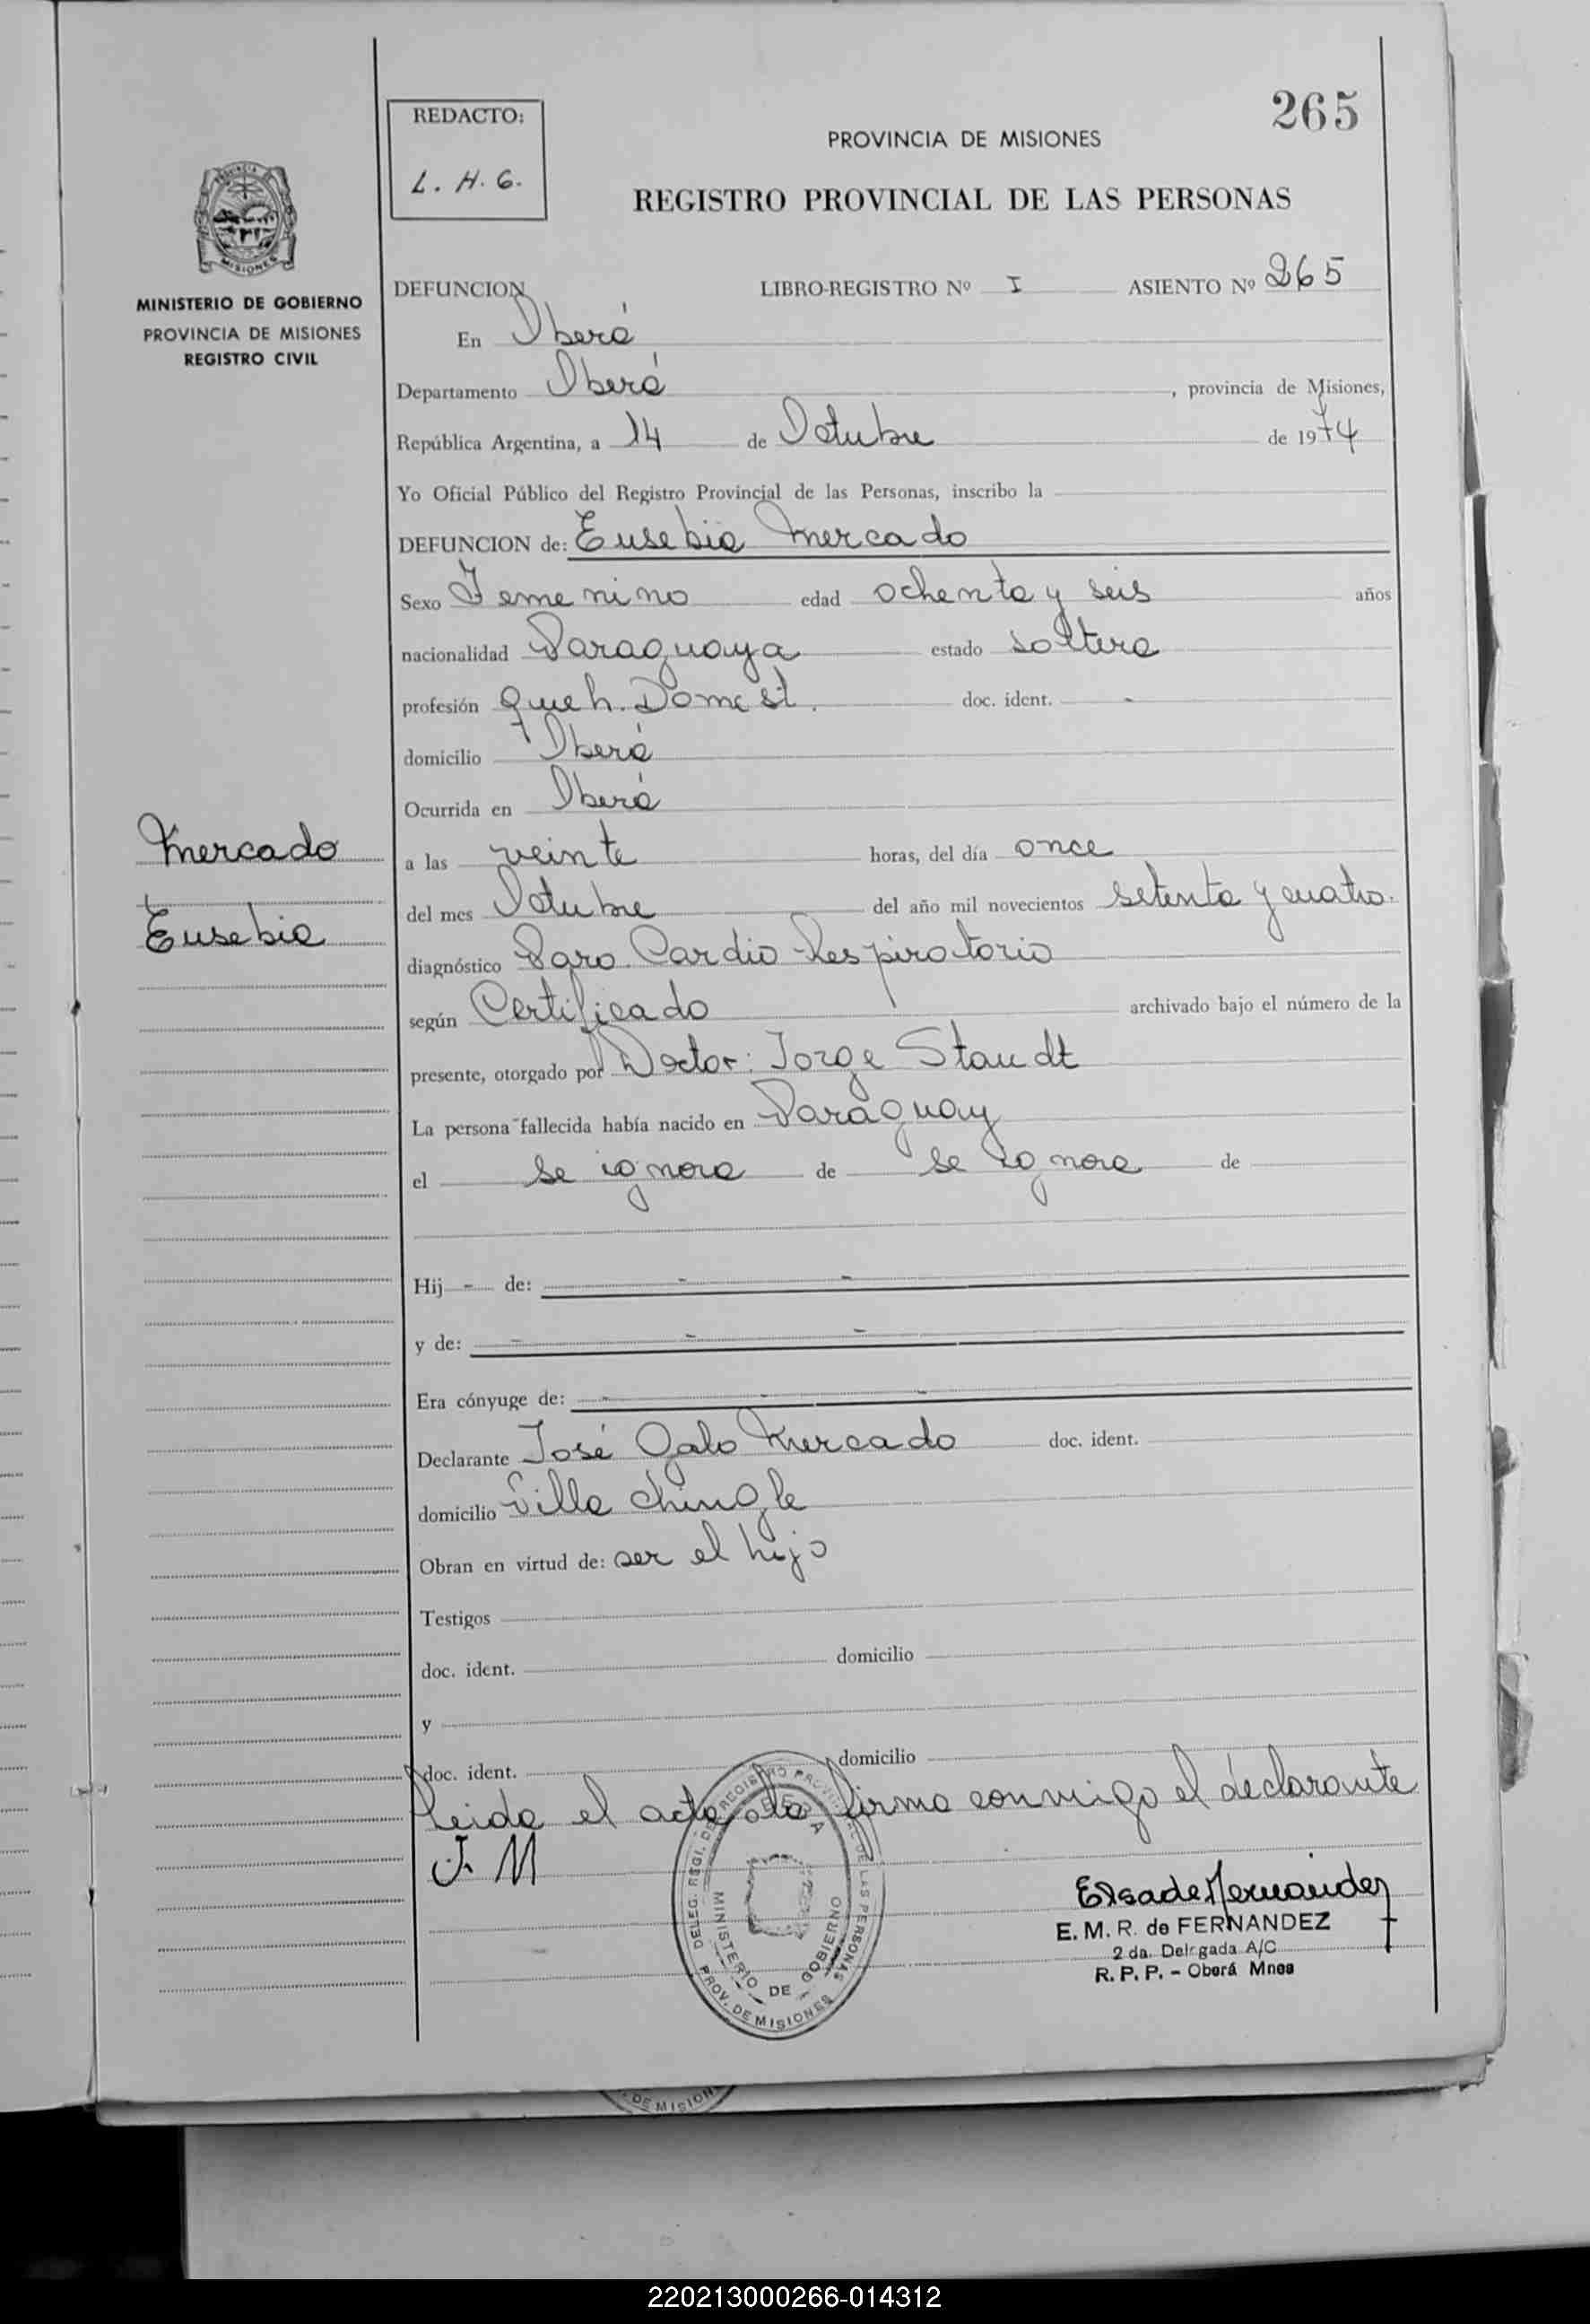 265
REDACTO:
L. H. G.
PROVINCIA DE MISIONES
REGISTRO PROVINCIAL DE LAS PERSONAS
MISIONES
MINISTERIO DE GOBIERNO
PROVINCIA DE MISIONES
REGISTRO CIVIL
DEFUNCION LIBRO-REGISTRO Nº I ASIENTO Nº 265
En Oberá
Departamento Oberá, provincia de Misiones,
República Argentina, a 14 de Octubre de 1974
Yo Oficial Público del Registro Provincial de las Personas, inscribo la
DEFUNCION de: Eusebia Mercado
Sexo Femenino edad ochenta y seis años
nacionalidad Paraguaya estado soltera
profesión Queh. Domest. doc. ident. -
domicilio Oberá
Ocurrida en Oberá
Mercado
Eusebia
a las veinte horas, del día once
del mes Octubre del año mil novecientos setenta y cuatro.
diagnóstico Paro Cardio-Respiratorio
según Certificado archivado bajo el número de la
presente, otorgado por Doctor: Jorge Staudt
La persona fallecida había nacido en Paraguay
el se ignora de se ignora de
Hij - de: - -
y de: - - -
Era cónyuge de: - - -
Declarante José Galo Mercado doc. ident.
domicilio Villa Chingle
Obran en virtud de: ser el hijo
Testigos
doc. ident. domicilio
y
doc. ident. domicilio
Leida el acta la firma conmigo el declarante
J. M
DELEG. REGI. DEL REGISTRO PROVINCIAL DE LAS PERSONAS
OBERA
MINISTERIO DE GOBIERNO
PROV. DE MISIONES
Elsa de Fernandez
E. M. R. de FERNANDEZ
2 da. Delegada A/C
R. P. P. - Oberá Mnes
DE MISION
220213000266-014312